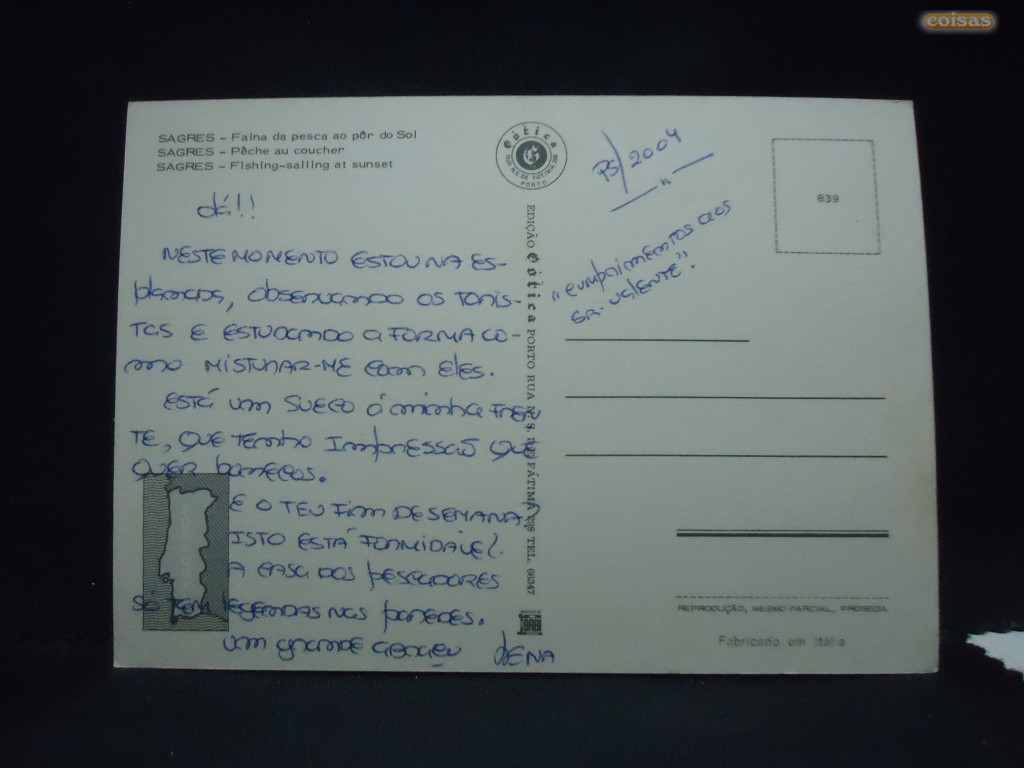 coisas
SAGRES - Faina da pesca ao pôr do Sol
SAGRES - Pêche au coucher
SAGRES - Fishing-sailing at sunset
Gótica
PORTO
PS/2004
839
"cumprimentos aos
SR. VALENTE".
Olá!!
NESTE MOMENTO ESTOU NA ES-
planada, observando os turis-
tas e ESTUDANDO a FORMA CO-
mo MISTURAR-ME com ELES.
ESTÁ um SUECO á minha FREN
TE, QUE TENHO IMPRESSÃO QUE
QUER barecos.
E O TEU Fim DE SEMANA?
ISTO ESTÁ FORMIDÁVEL.
A CASA DOS PESCADORES
SÓ TEM LEGENDAS NAS PAREDES.
um grande
LENA
EDIÇÃO Gótica PORTO RUA N. S. DE FÁTIMA, 208 TEL. 66947
REPRODUÇÃO, MESMO PARCIAL, PROIBIDA
Fabricado em Itália